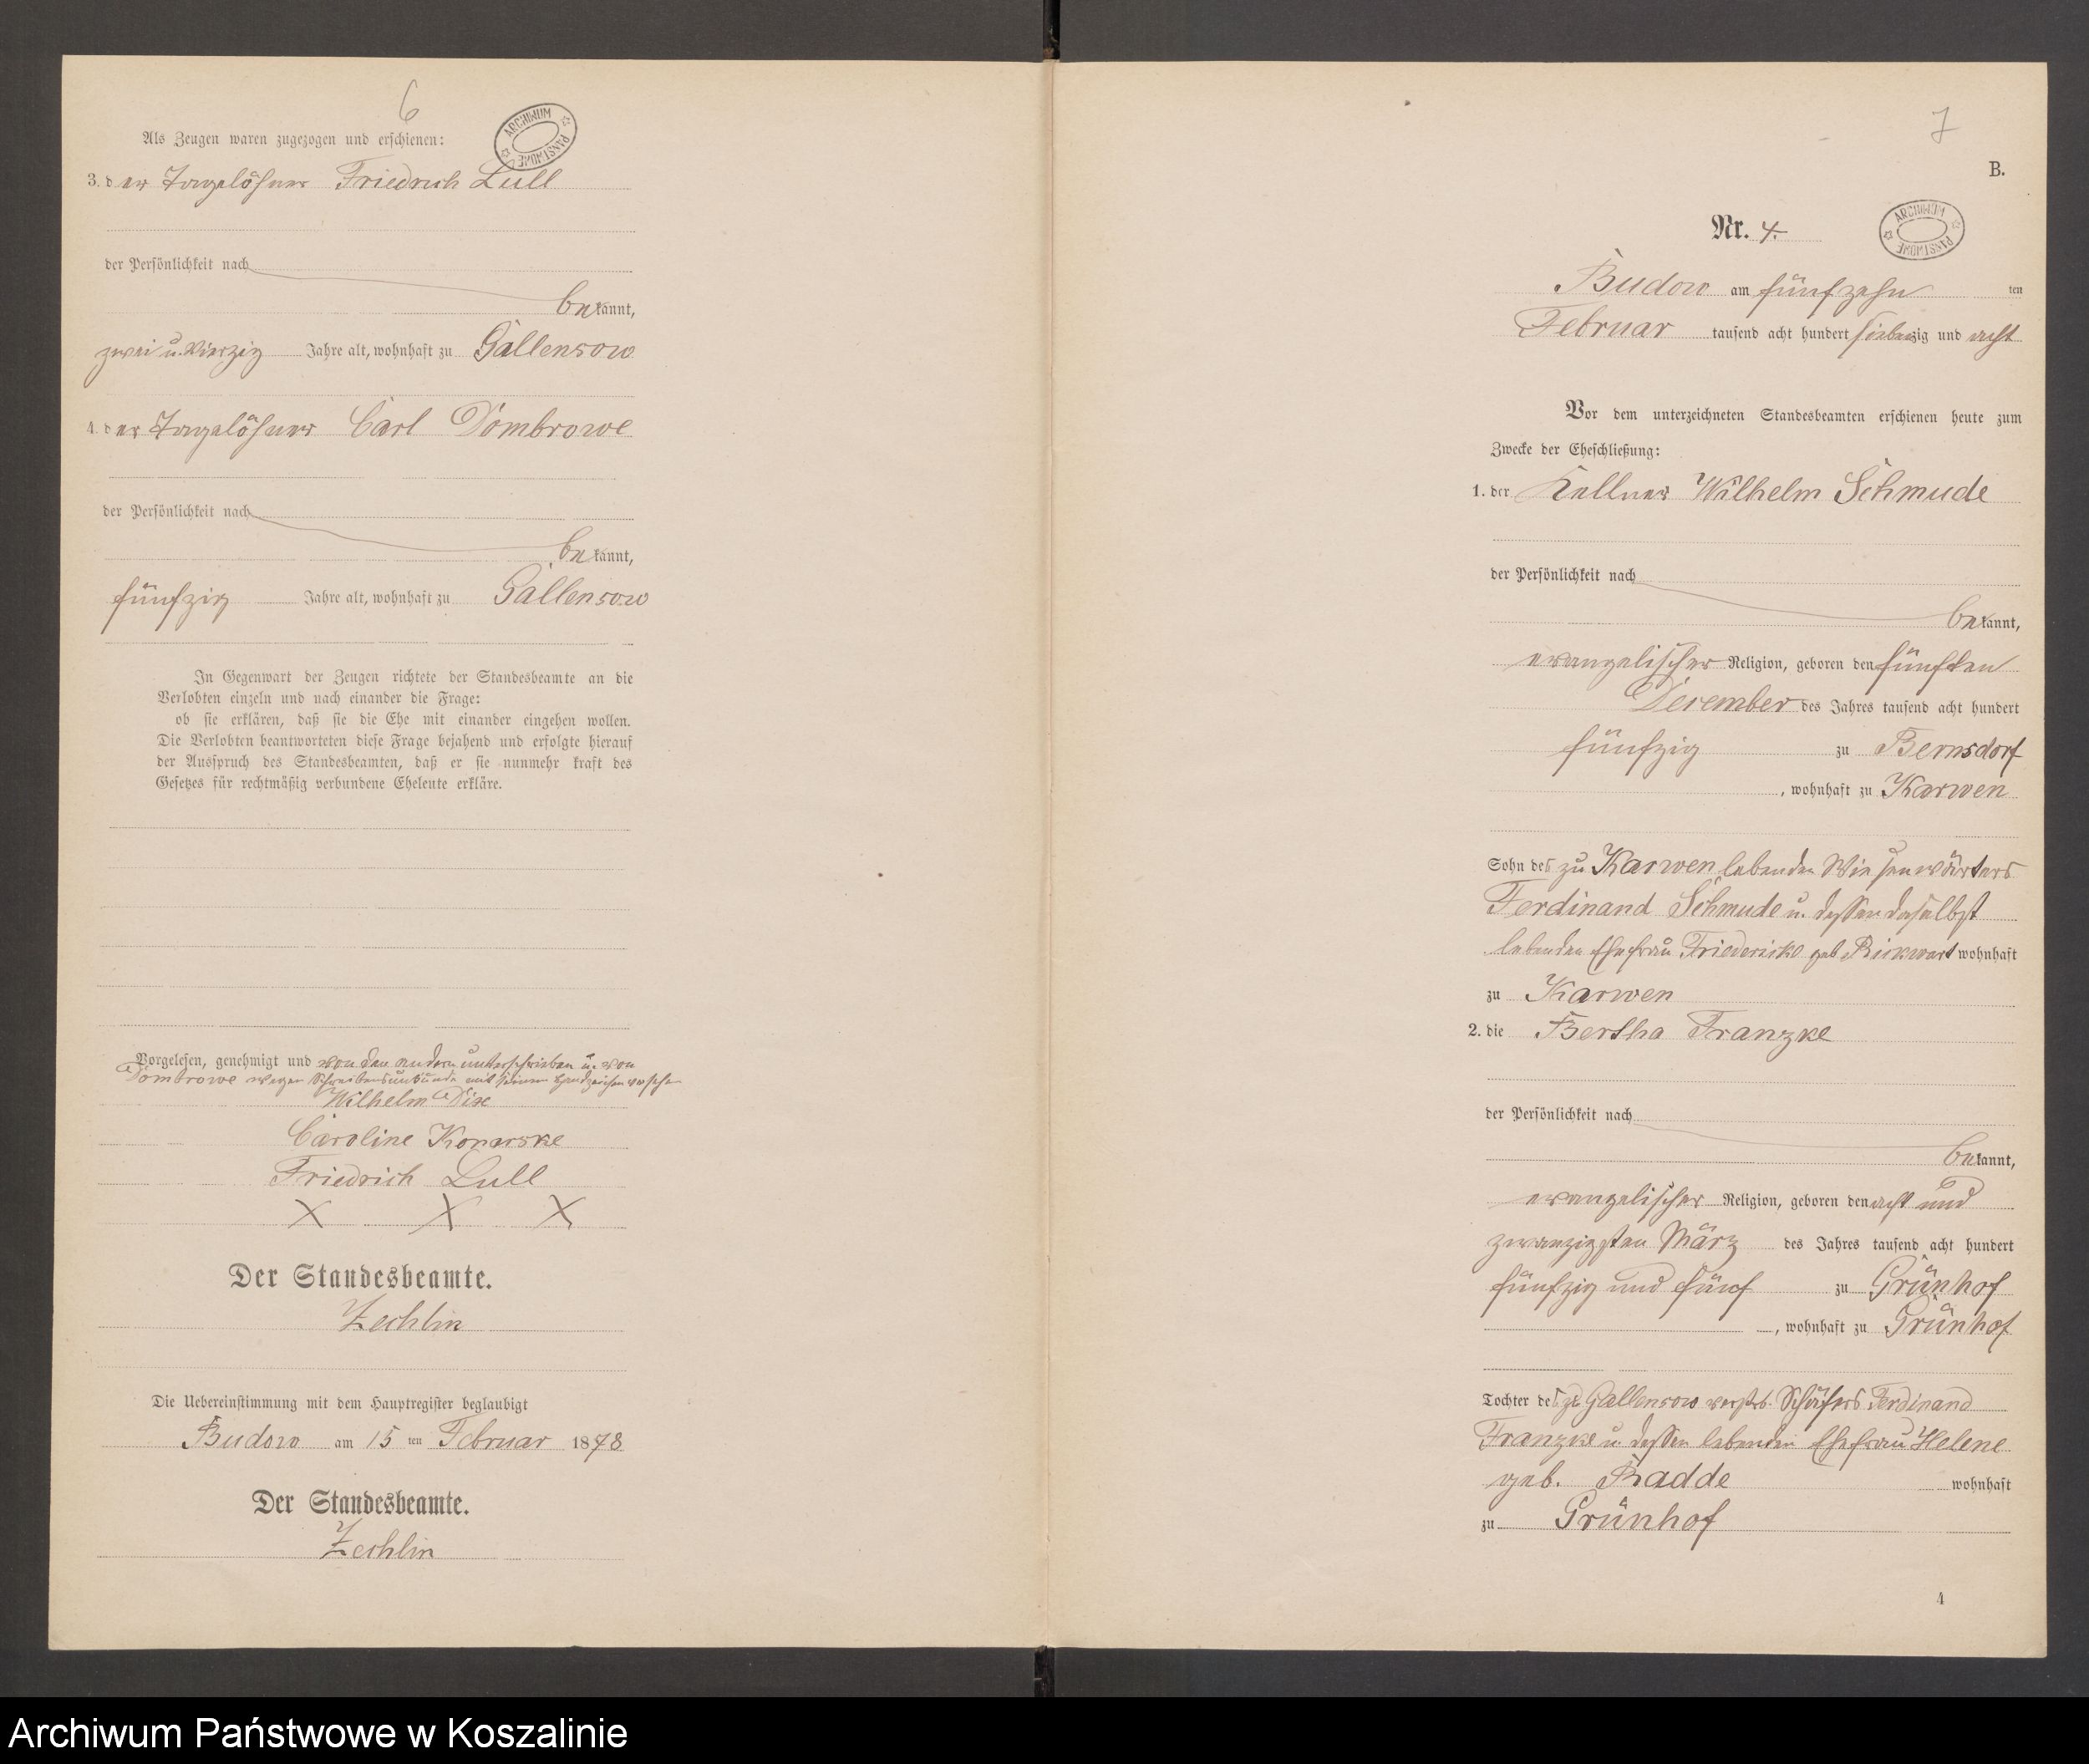 6
ARCHIWUM PAŃSTWOWE
Als Zeugen waren zugezogen und erschienen:
3. der Tagelöhner Friedrich Lull
der Persönlichkeit nach
bekannt,
zwei u. vierzig Jahre alt, wohnhaft zu Gallensow
4. der Tagelöhner Carl Dombrowe
der Persönlichkeit nach
bekannt,
fünfzig Jahre alt, wohnhaft zu Gallensow
In Gegenwart der Zeugen richtete der Standesbeamte an die
Verlobten einzeln und nach einander die Frage:
ob sie erklären, daß sie die Ehe mit einander eingehen wollen.
Die Verlobten beantworteten diese Frage bejahend und erfolgte hierauf
der Ausspruch des Standesbeamten, daß er sie nunmehr kraft des
Gesetzes für rechtmäßig verbundene Eheleute erkläre.
Vorgelesen, genehmigt und von den andern unterschrieben u. von
Dombrowe wegen Schreibensunkunde mit seinem Handzeichen versehen
Wilhelm Dix
Caroline Konarske
Friedrich Lull
X X X
Der Standesbeamte.
Zechlin
Die Uebereinstimmung mit dem Hauptregister beglaubigt
Budow am 15 ten Februar 1878
Der Standesbeamte.
Zechlin
7
B.
Nr. 4.
ARCHIWUM PAŃSTWOWE
Budow am fünfzehn ten
Februar tausend acht hundert siebenzig und acht
Vor dem unterzeichneten Standesbeamten erschienen heute zum
Zwecke der Eheschließung:
1. der Kellner Wilhelm Schmude
der Persönlichkeit nach
bekannt,
evangelischer Religion, geboren den fünften
December des Jahres tausend acht hundert
fünfzig zu Bernsdorf
, wohnhaft zu Karwen
Sohn des zu Karwen lebenden Wiesenwärters
Ferdinand Schmude u. dessen daselbst
lebenden Ehefrau Friedericke geb. wohnhaft
zu Karwen
2. die Bertha Franzke
der Persönlichkeit nach
bekannt,
evangelischer Religion, geboren den acht und
zwanzigsten März des Jahres tausend acht hundert
fünfzig und fünf zu Grünhof
, wohnhaft zu Grünhof
Tochter des zu Gallensow verstrb. Schäfers Ferdinand
Franzke u. dessen lebenden Ehefrau Helene
geb. Radde wohnhaft
zu Grünhof
4
Archiwum Państwowe w Koszalinie